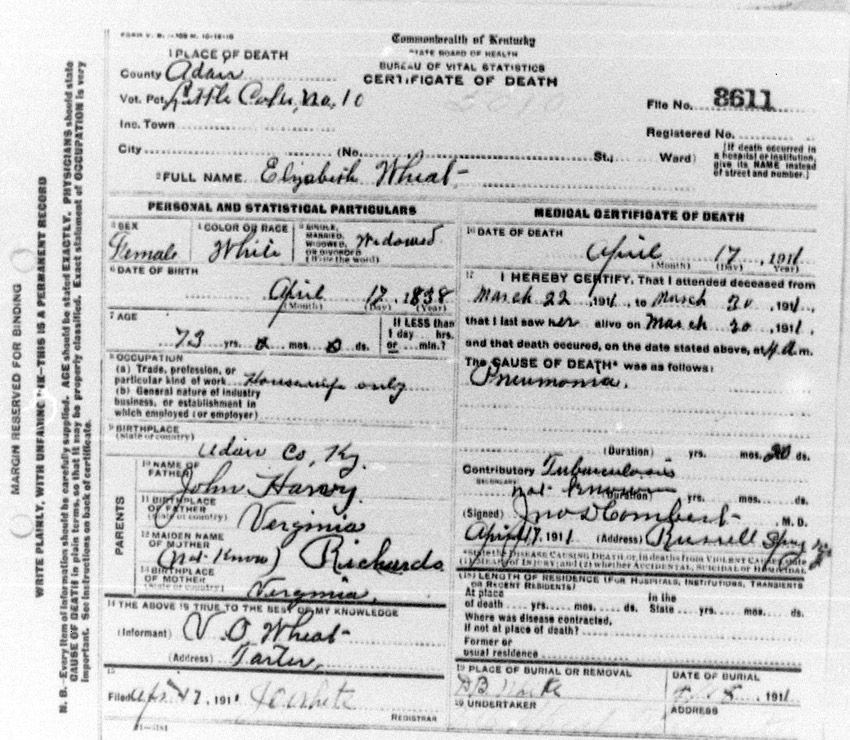 FORM V. S.
Commonwealth of Kentucky
STATE BOARD OF HEALTH
BUREAU OF VITAL STATISTICS
CERTIFICATE OF DEATH
1 PLACE OF DEATH
County Adair
Vot. Pct. Little Cake, No. 10
Inc. Town
City (No. St., Ward)
File No. 8611
Registered No.
[If death occurred in a hospital or institution, give its NAME instead of street and number.]
2 FULL NAME Elizabeth Wheat
PERSONAL AND STATISTICAL PARTICULARS
3 SEX Female
4 COLOR OR RACE White
5 SINGLE, MARRIED, WIDOWED, OR DIVORCED (Write the word) Widowed
6 DATE OF BIRTH
April 17, 1838
(Month) (Day) (Year)
7 AGE
73 yrs. 0 mos. 0 ds.
If LESS than 1 day hrs. or min.?
8 OCCUPATION
(a) Trade, profession, or
particular kind of work Housewife only
(b) General nature of industry
business, or establishment in
which employed (or employer)
9 BIRTHPLACE
(State or country)
Adair Co, Ky.
PARENTS
10 NAME OF FATHER John Harvy
11 BIRTHPLACE OF FATHER (State or country) Virginia
12 MAIDEN NAME OF MOTHER (Not Know) Richards
13 BIRTHPLACE OF MOTHER (State or country) Virginia,
14 THE ABOVE IS TRUE TO THE BEST OF MY KNOWLEDGE
(Informant) V. O Wheat
(Address) Tarter,
15
Filed Apr 17, 191
REGISTRAR
MEDICAL CERTIFICATE OF DEATH
16 DATE OF DEATH
April 17, 1911
(Month) (Day) Year)
17 I HEREBY CERTIFY, That I attended deceased from
March 22, 1911, to March 30, 1911,
that I last saw her alive on March 30, 1911,
and that death occured, on the date stated above, at 4 a.m.
The CAUSE OF DEATH* was as follows:
Pneumonia.
(Duration) yrs. mos. 20 ds.
Contributory Tuberculosis
SECONDARY
not known (Duration) yrs. mos. ds.
(Signed) Jno D Combest M. D.
April 17, 1911 (Address) Russell Spgs
*State the DISEASE CAUSING DEATH, or, in deaths from VIOLENT CAUSES, state
(1) MEANS OF INJURY; and (2) whether ACCIDENTAL, SUICIDAL or HOMICIDAL
(18) LENGTH OF RESIDENCE (FOR HOSPITALS, INSTITUTIONS, TRANSIENTS
OR RECENT RESIDENTS)
At place of death yrs. mos. ds. In the State yrs. mos. ds.
Where was disease contracted,
If not at place of death?
Former or
usual residence
19 PLACE OF BURIAL OR REMOVAL
DATE OF BURIAL
1911
20 UNDERTAKER
ADDRESS
MARGIN RESERVED FOR BINDING
WRITE PLAINLY, WITH UNFADING INK—THIS IS A PERMANENT RECORD
N. B.—Every item of information should be carefully supplied. AGE should be stated EXACTLY. PHYSICIANS should state
CAUSE OF DEATH in plain terms, so that it may be properly classified. Exact statement of OCCUPATION is very
important. See instructions on back of certificate.